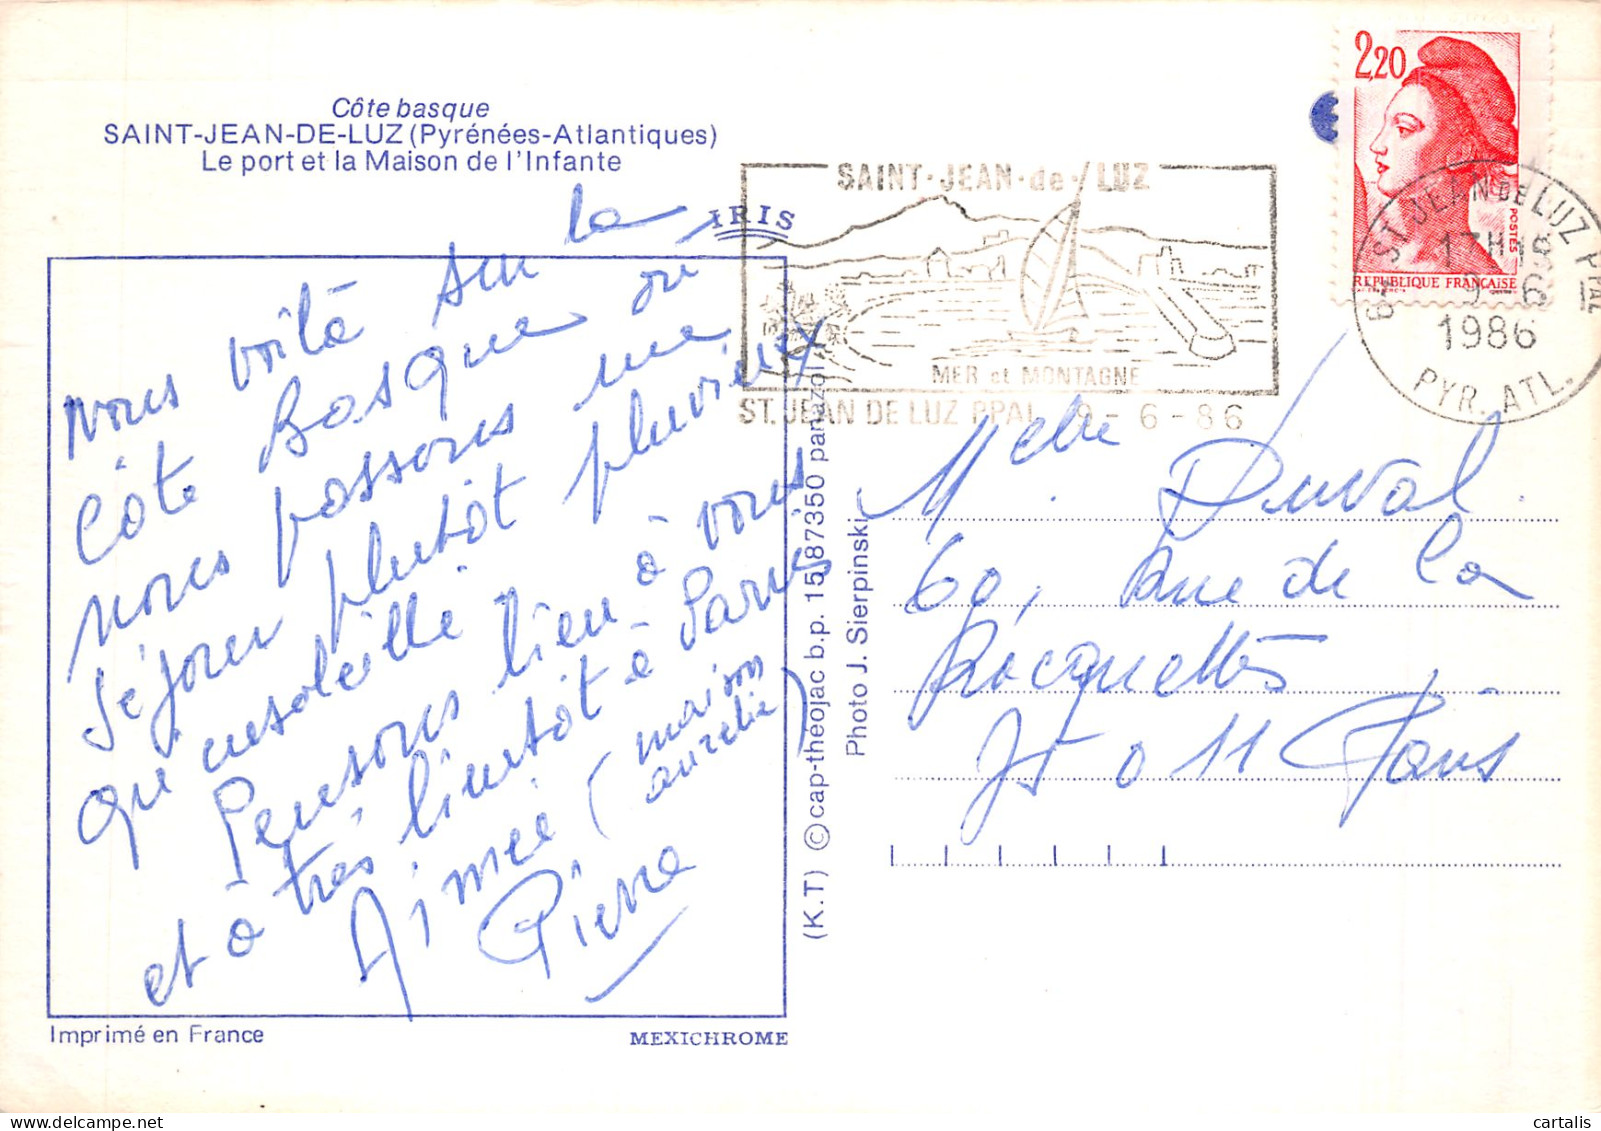 Côte basque
SAINT-JEAN-DE-LUZ (Pyrénées-Atlantiques)
Le port et la Maison de l'Infante
IRIS
Nous voilà sur la
Côte Basque où
nous passons un
séjour plutôt pluvieux
qu'ensoleillé
Pensons bien à vous
et à très bientôt à Paris
Aimée (maison
aurélie)
Pierre
Imprimé en France
MEXICHROME
(K.T) © cap-théojac b.p. 15 87350 panazol
Photo J. Sierpinski
SAINT-JEAN-de-LUZ
MER et MONTAGNE
ST. JEAN DE LUZ PPAL 9-6-86
2,20
POSTES
REPUBLIQUE FRANÇAISE
64 ST JEAN DE LUZ PPAL
17H
9-6
1986
PYR. ATL.
Duval
60, Rue de la
Roquette
75011 Paris